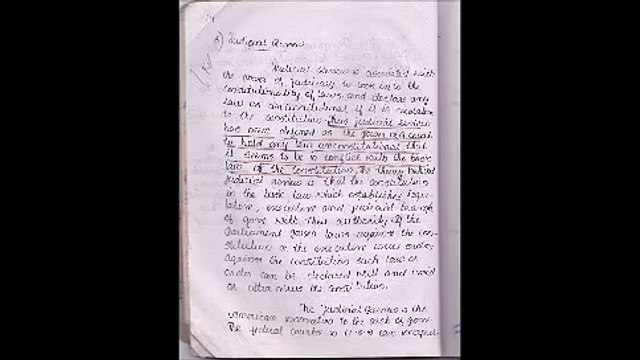 14
6) Judicial Review
Judicial Review is associated with
the power of judiciary to look into the
constitutionality of laws and declare any
law as unconstitutional if it is violative
to the constitution. Thus judicial review
has been defined as the power of a court
to hold any law unconstitutional that
it deems to be in conflict with the basic
law of the constitution. The theory behind
judicial review is that the constitution
is the basic law which establishes legis-
lature, executive and judicial branch
of govt with their authority. If the
Parliament passes laws against the con-
stitution or the executive issues orders
against the constitution such law or
order can be declared null and void
or ultra vires the constitution.
The Judicial Review is the
American to the of govt.
The federal courts in U.S.A can